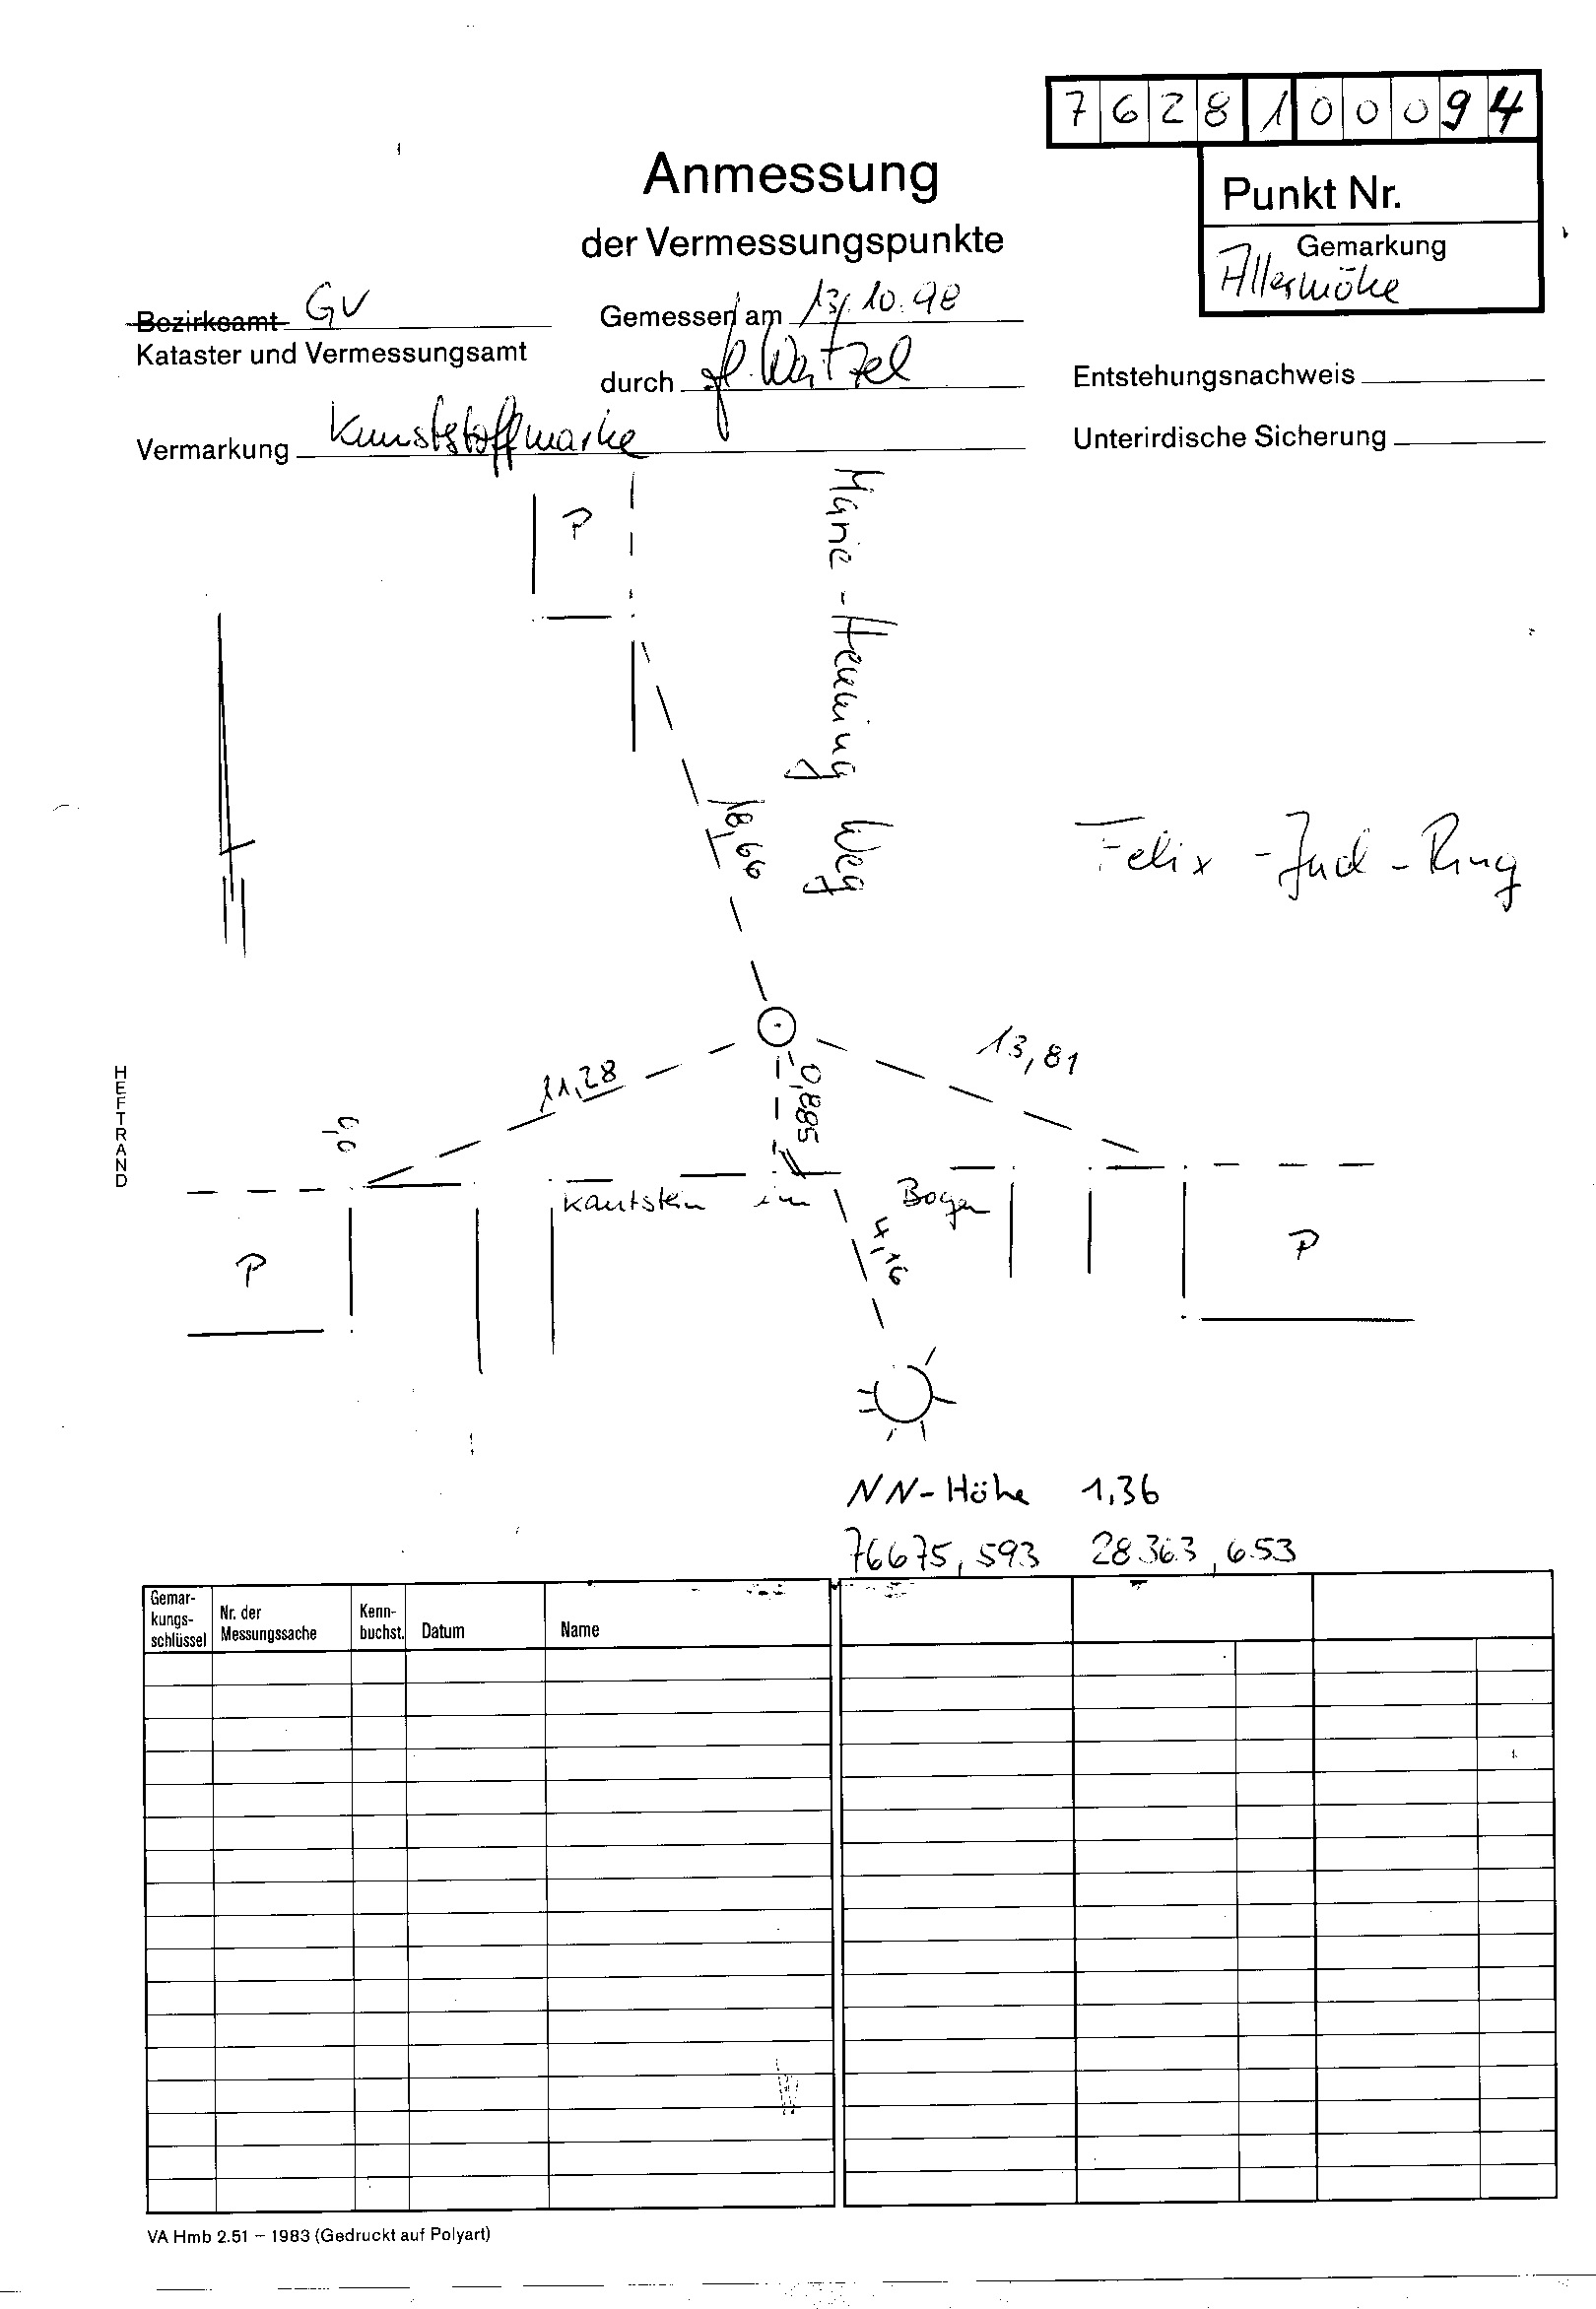 7628100094
Anmessung
der Vermessungspunkte
Punkt Nr.
Gemarkung
Allermöhe
Bezirksamt GV
Kataster und Vermessungsamt
Gemessen am 13.10.98
durch
Entstehungsnachweis
Vermarkung Kunststoffmarke
Unterirdische Sicherung
P
Marie-Henning Weg
18,66
Felix-Jud-Ring
HEFTRAND
11,28
13,81
0,885
0,0
Kantstein im Bogen
4,16
P
P
NN-Höhe 1,36
76675,593 28363,653
Gemar-
kungs-
schlüssel
Nr. der
Messungssache
Kenn-
buchst.
Datum
Name
VA Hmb 2.51 – 1983 (Gedruckt auf Polyart)